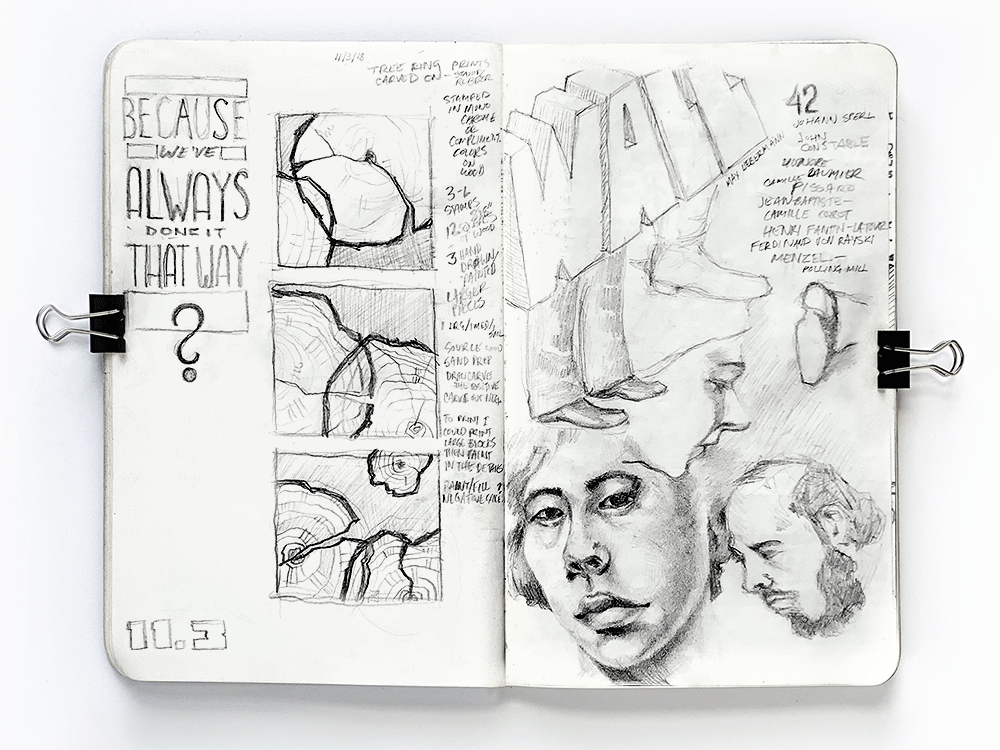 BECAUSE
WE'VE
ALWAYS
DONE IT
THAT WAY
?
11.3
11/3/18
TREE RING PRINTS
CARVED ON -
RUBBER
STAMPED
IN MONO
CHROME
OR
COMPLIMENT.
COLORS
ON
WOOD
3-6
STAMPS
WOOD
3 HAND
DRAWN/
PAINTED
LARGER
PIECES
1 LRG/1 MED/
SML
SOURCE WOOD
SAND PREP
DRAW/CARVE
THE POSITIVE
CARVE OUT NEG.
TO PRINT I
COULD PRINT
LARGE BLOCKS
THEN PAINT
IN THE DETAILS
PAINT/FILL
NEGATIVE SPACE
MALL
MAX LIEBERMANN
42
JOHANN SPERL
JOHN
CONSTABLE
HONORE
DAUMIER
CAMILLE
PISSARO
JEAN-BAPTISTE-
CAMILLE COROT
HENRI FANTIN-LATOUR
FERDINAND VON RAYSKI
MENZEL-
ROLLING MILL